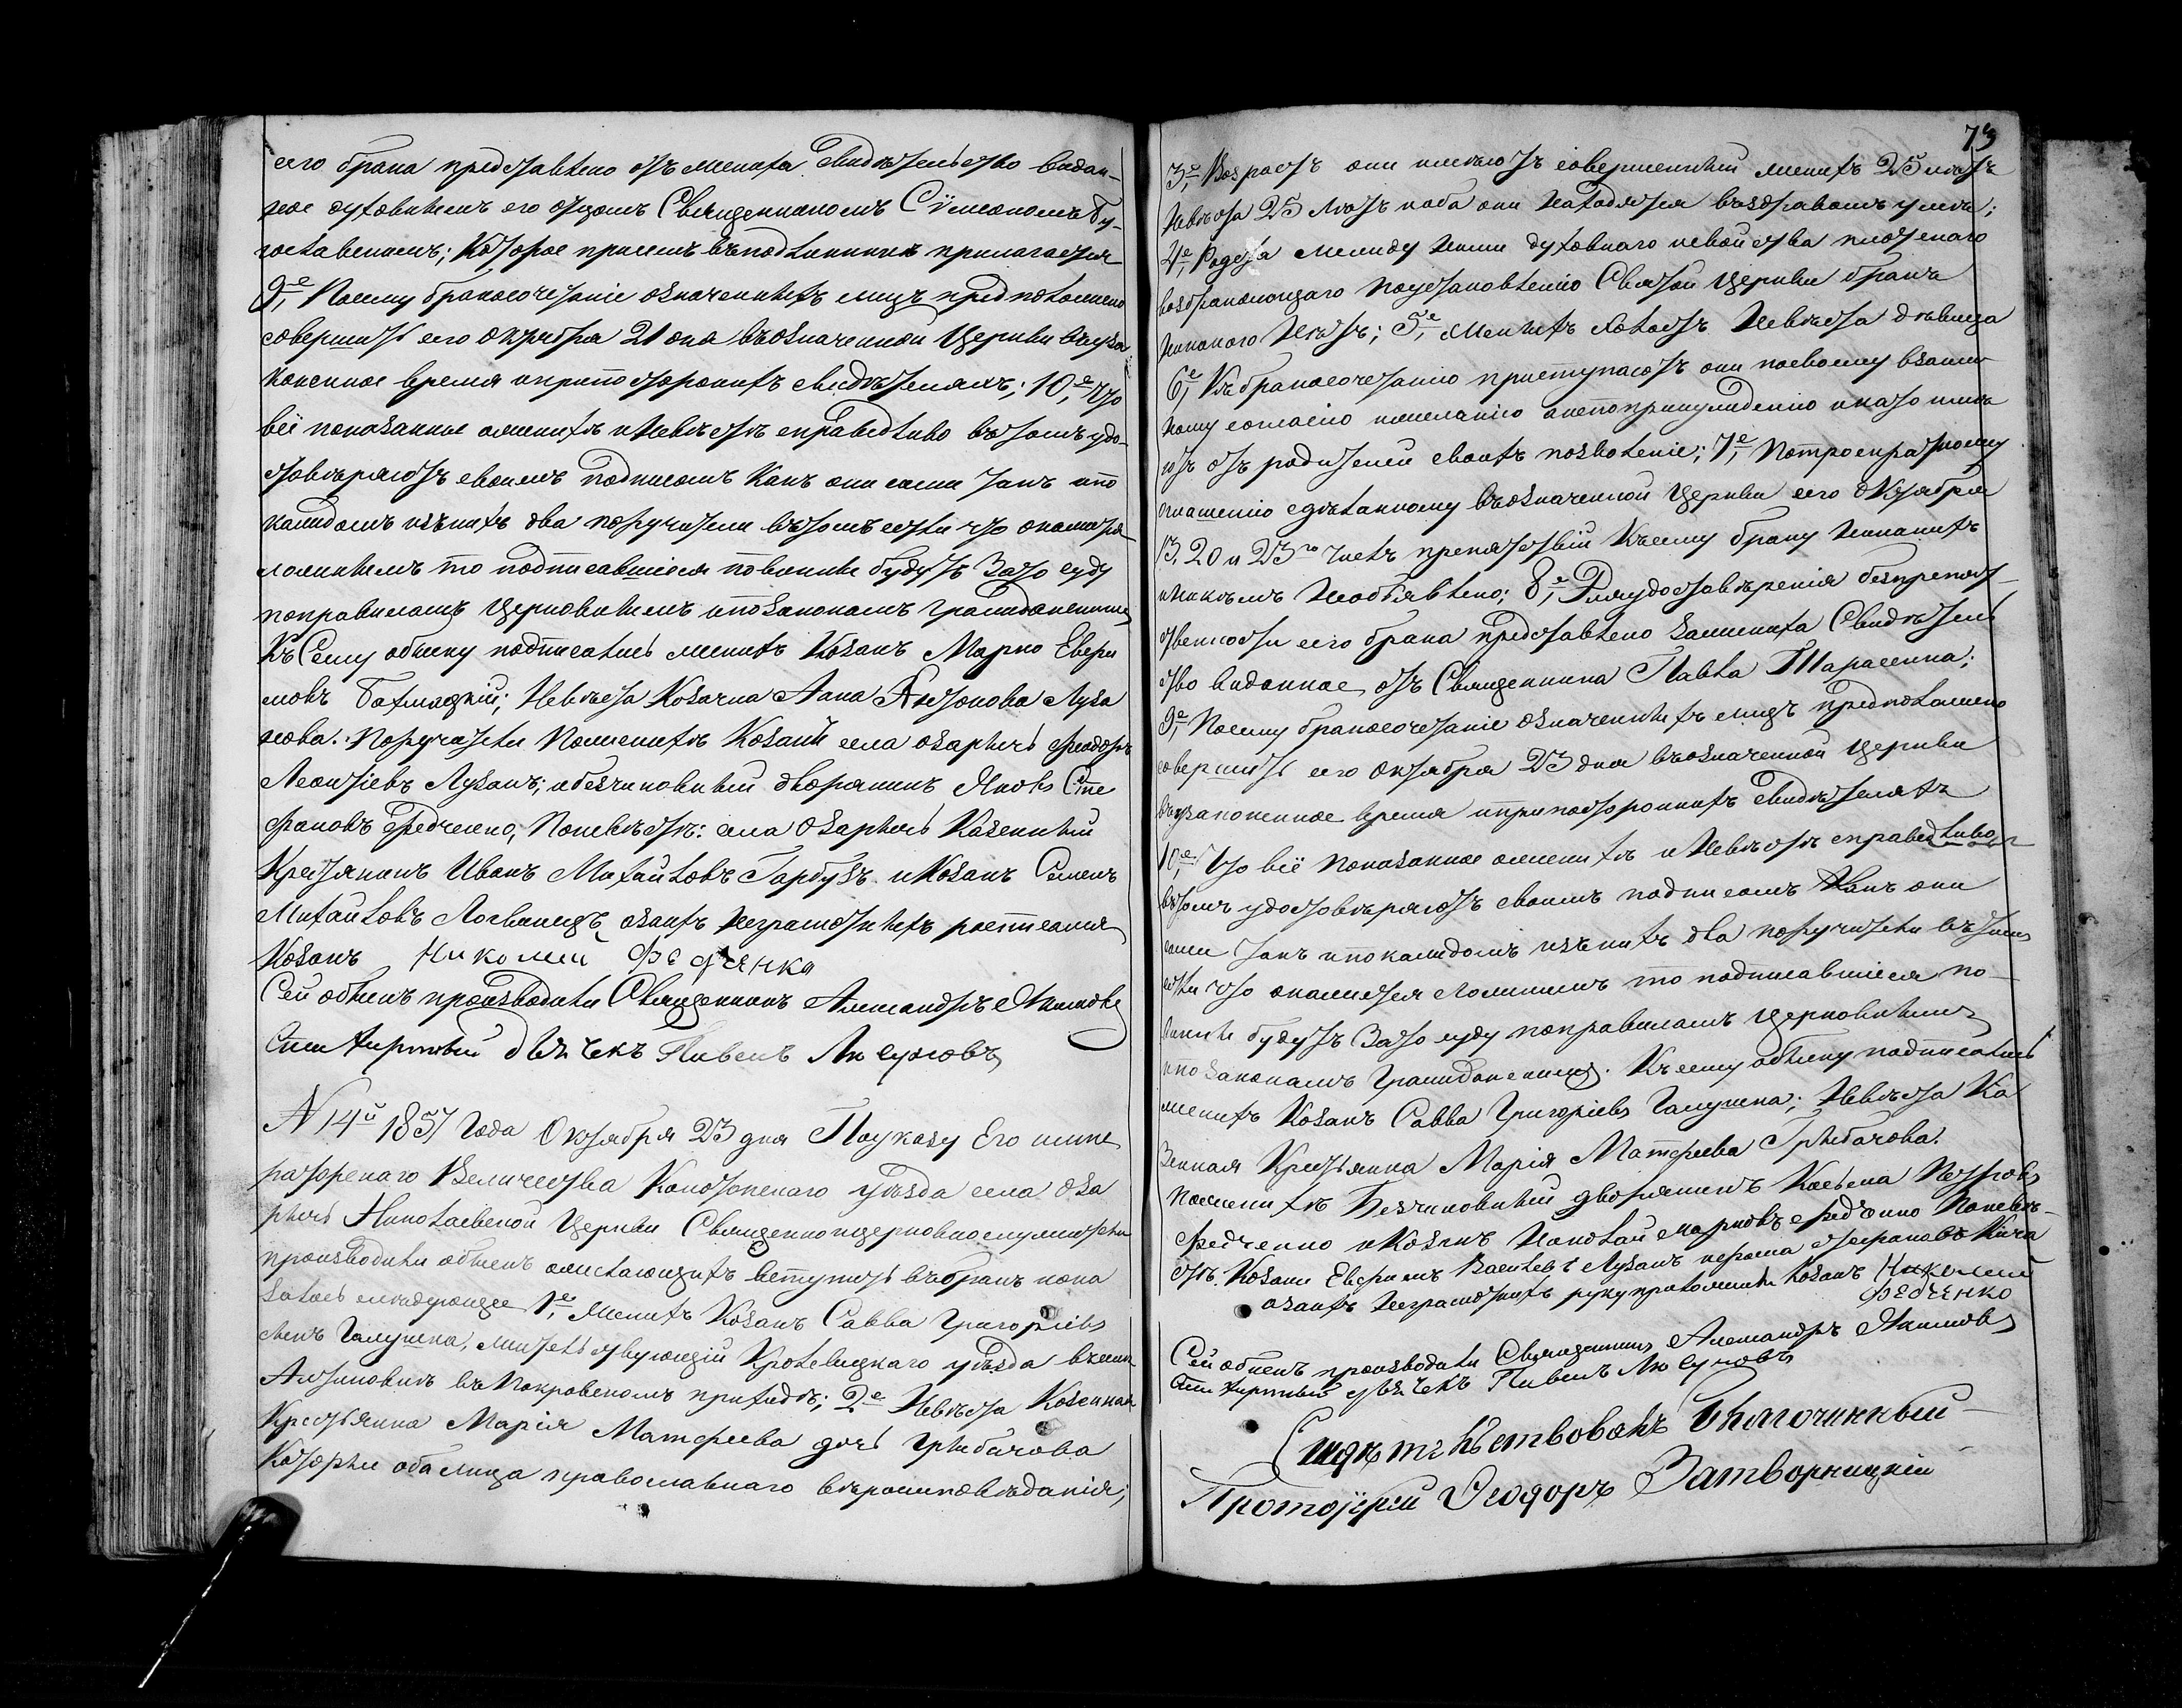 сего брака представлено отъ жениха свидѣтельство видан-
ное духовнымъ его отцомъ Священникомъ Сѵмеономъ Бу-
гославскимъ; которое при семъ въ подлинникѣ прилагается
9е, Посему бракосочетаніе означенныхъ лицъ предположено
совершить сего октября 21 дня въ означенной Церкви въ уза-
коненное время и при постороннихъ свидѣтеляхъ; 10,е Что
всё показанное о женихѣ и невѣстѣ справедливо въ томъ удо-
стовѣряютъ своимъ подписомъ какъ они сами такъ и по
каждомъ изъ нихъ два поручители въ томъ если что окажется
ложнымъ то подписавшіеся повинны будутъ за то суду
по правиламъ Церковнымъ и по законамъ гражданскимъ
Къ Сему обыску подписались женихъ Козакъ Марко Евфи
мовъ Бахмацкій; Невѣста Козачка Анна Антонова Луза
нова. Поручители По женихѣ Козаки села Озарычъ Феодоръ
Леонтіевъ Лузанъ; и безчиновный дворянинъ Яковъ Сте
фановъ Федченко, По невѣстѣ: села Озарычъ Казенный
Крестянинъ Иванъ Михайловъ Гарбузъ и Козакъ Семенъ
Михайловъ Логвинецъ, а за ихъ неграмотныхъ росписался
Козакъ Николай Федченко
Сей обыскъ производили Священникъ Александръ Якимовъ
Стихирный дьячекъ Пивенъ
N 14й 1857 Года Октября 23 дня По указу Его импе
раторскаго Величества Конотопскаго уѣзда села Оза
рычъ Николаевской Церкви Священно и церковнослужители
производили обыскъ о желающихъ вступить въ бракъ и ока
залось слѣдующее 1е, Женихъ Козакъ Савва Григоріевъ
сынъ Галушка, жительствующій Кролевецкаго уѣзда въ селѣ
Алтыновкѣ въ Покровскомъ приходѣ; 2е Невѣста Козенная
Крестьянка Марія Матфеева дочь Грибачова
Которые оба лица православнаго вѣроисповѣданія;
73
3е, Возрастъ они имѣютъ совершенный женихъ 25 лѣтъ
невѣста 25 лѣтъ и оба они находятся въ здравомъ умѣ;
4е, Родства между ними духовнаго и свойства плотскаго
возбраняющаго по установленію Святой Церкви брака
никакого нѣтъ; 5,е Женихъ холостъ Невѣста дѣвица
6е, Къ бракосочетанію приступаютъ они по своему взаим
ному согласію и желанію а не по принужденію и на то имѣ
ютъ отъ родителей своихъ позволеніе; 7е, По троекратному
оглашенію сдѣланному въ означенной Церкви сего Октября
13, 20 и 23го числъ препятствій къ сему браку никакихъ
и никѣмъ не объявлено; 8,е Для удостовѣренія безпрепят-
ственности сего брака представлено за жениха Свидѣтель
ство виданное отъ Священника Павла Тарасевича;
9,е Посему бракосочетаніе означенныхъ лицъ предположено
совершить сего октября 23 дня въ означенной Церкви
въ узаконенное время и при постороннихъ свидѣтеляхъ
10,е Что всё показанное о женихѣ и невѣстѣ справедливо
въ томъ удостовѣряютъ своимъ подписомъ какъ они
сами такъ и по каждомъ изъ нихъ два поручители въ томъ
если что окажется ложнымъ то подписавшіеся по-
винны будутъ за то суду по правиламъ Церковнымъ
и по законамъ гражданскимъ. Къ сему обыску подписались
женихъ Козакъ Савва Григоріевъ Галушка; Невѣста Ка
зенная Крестьянка Марія Матфеева Грибачова.
По женихѣ Безчиновный дворянинъ Косьма Петровъ
Федченко и Козакъ Николай Марковъ Федченко По невѣ-
стѣ. Козаки Евфимъ Васильевъ Лузанъ и Стефановъ
а за ихъ неграмотныхъ руку приложилъ Козакъ Николай
Федченко
Сей обыскъ производили Священникъ Александръ Якимовъ
Стихирный дьячекъ Пивенъ
Свидѣтельствовалъ Благочинный
Протоіерей Ѳеодоръ Затворницкій